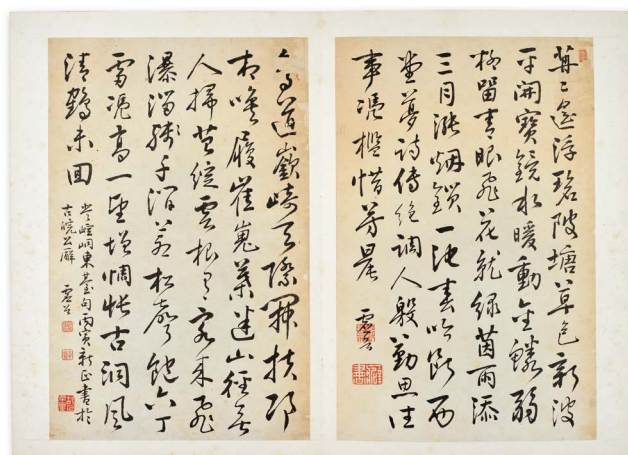 苒苒遥浮碧陂塘草色新波
平開寶鏡水暖動金鱗弱
柳留青眼飛花就綠茵雨添
三月漲烟鎖一池春吟斷西
堂夢詩傳絕調人殷勤思往
事憑檻惜芳晨
天際開扶筇
相喚履崔嵬葉迷山徑無
人掃苔綻雲根有客來飛
瀑溜千松聲飽六丁
雷憑高一望增惆悵古洞風
清鶴未回
登崆峒東臺句丙寅新正書於
古皖公廨